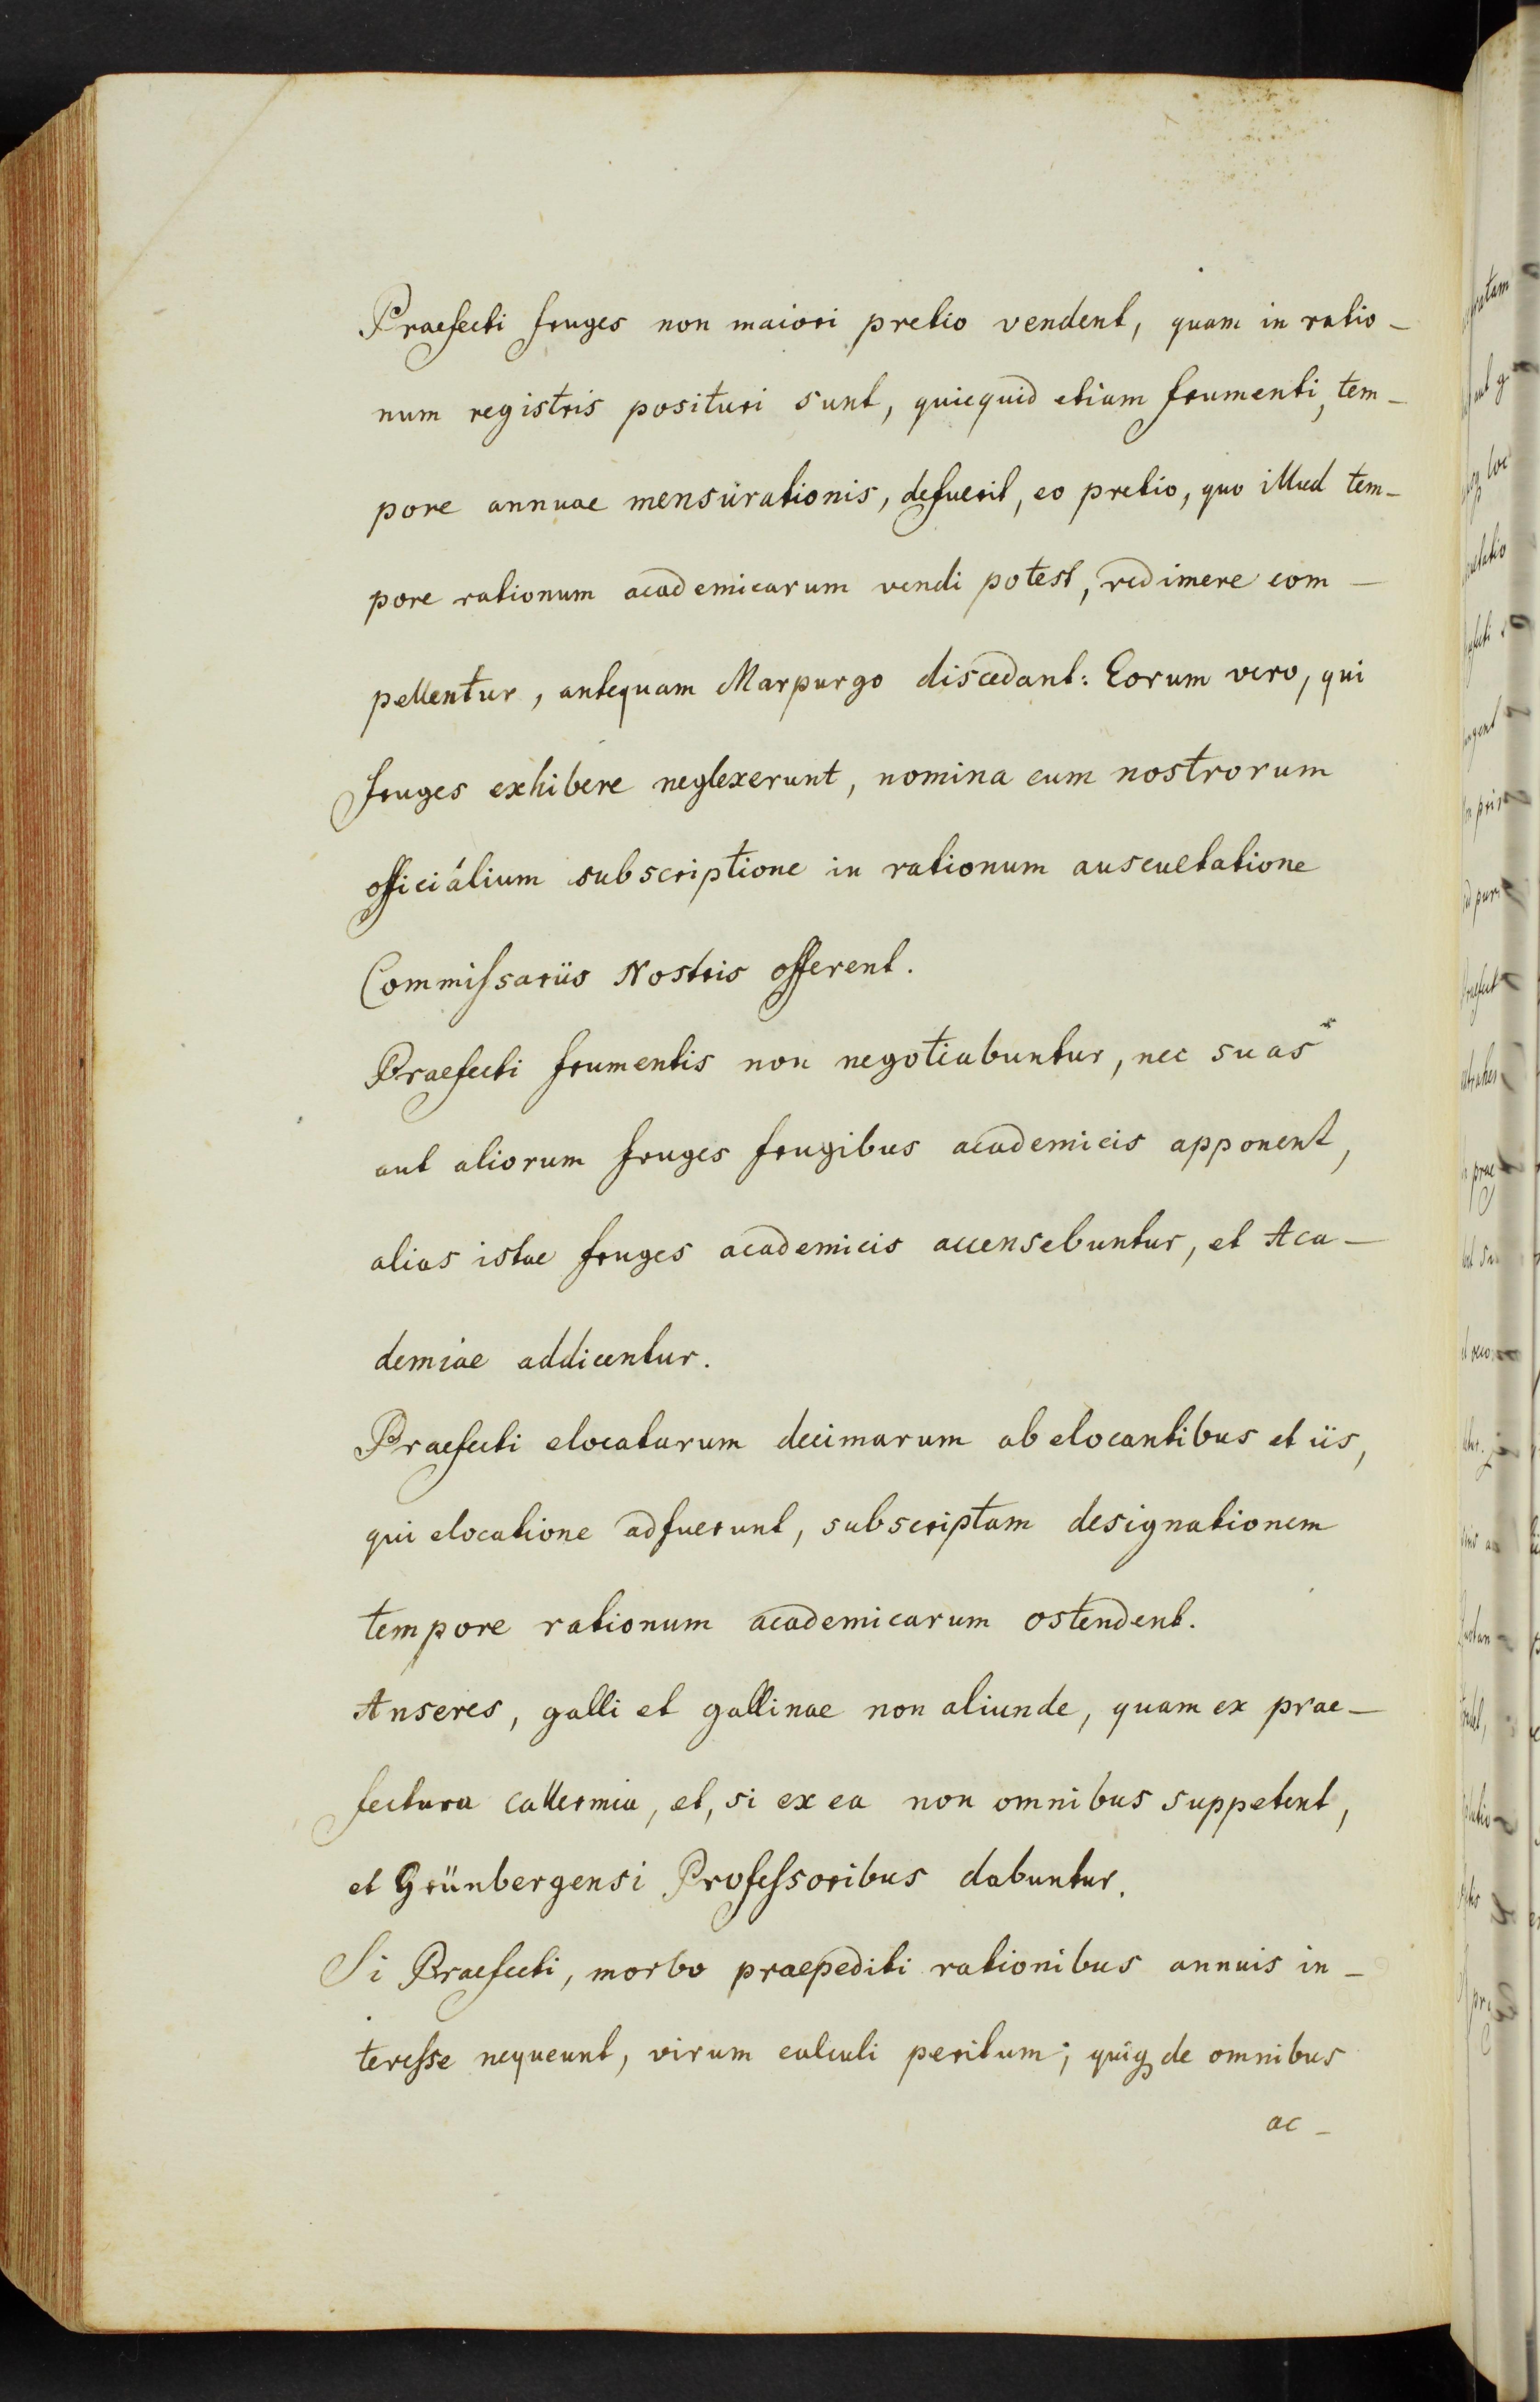 Praefecti fruges non maiori pretio vendent, quam in ratio-
num registris posituri sunt, quicquid etiam frumenti, tem-
pore annuae mensurationis, defuerit, eo pretio, quo illud tem-
pore rationum academicarum vendi potest, redimere com-
pellentur, antequam Marpurgo discedant: Eorum vero, qui
fruges exhibere neglexerunt, nomina cum nostrorum
officialium subscriptione in rationum auscultatione
Commissariis Nostris offerent.
Praefecti frumentis non negotiabuntur, nec suas
aut aliorum fruges frugibus academicis apponent,
alias istae fruges academicis accensebuntur, et Aca-
demiae addicentur.
Praefecti elocatarum decimarum ab elocantibus et iis,
qui elocatione adfuerunt, subscriptam designationem
tempore rationum academicarum ostendent.
Anseres, galli et gallinae non aliunde, quam ex prae-
fectura callermia, et, si ex ea non omnibus suppetent,
et Grünbergensi Professoribus dabuntur.
Si Praefecti, morbo praepediti rationibus annuis in-
teresse nequeunt, virum calculi peritum; quiq de omnibus
ac-